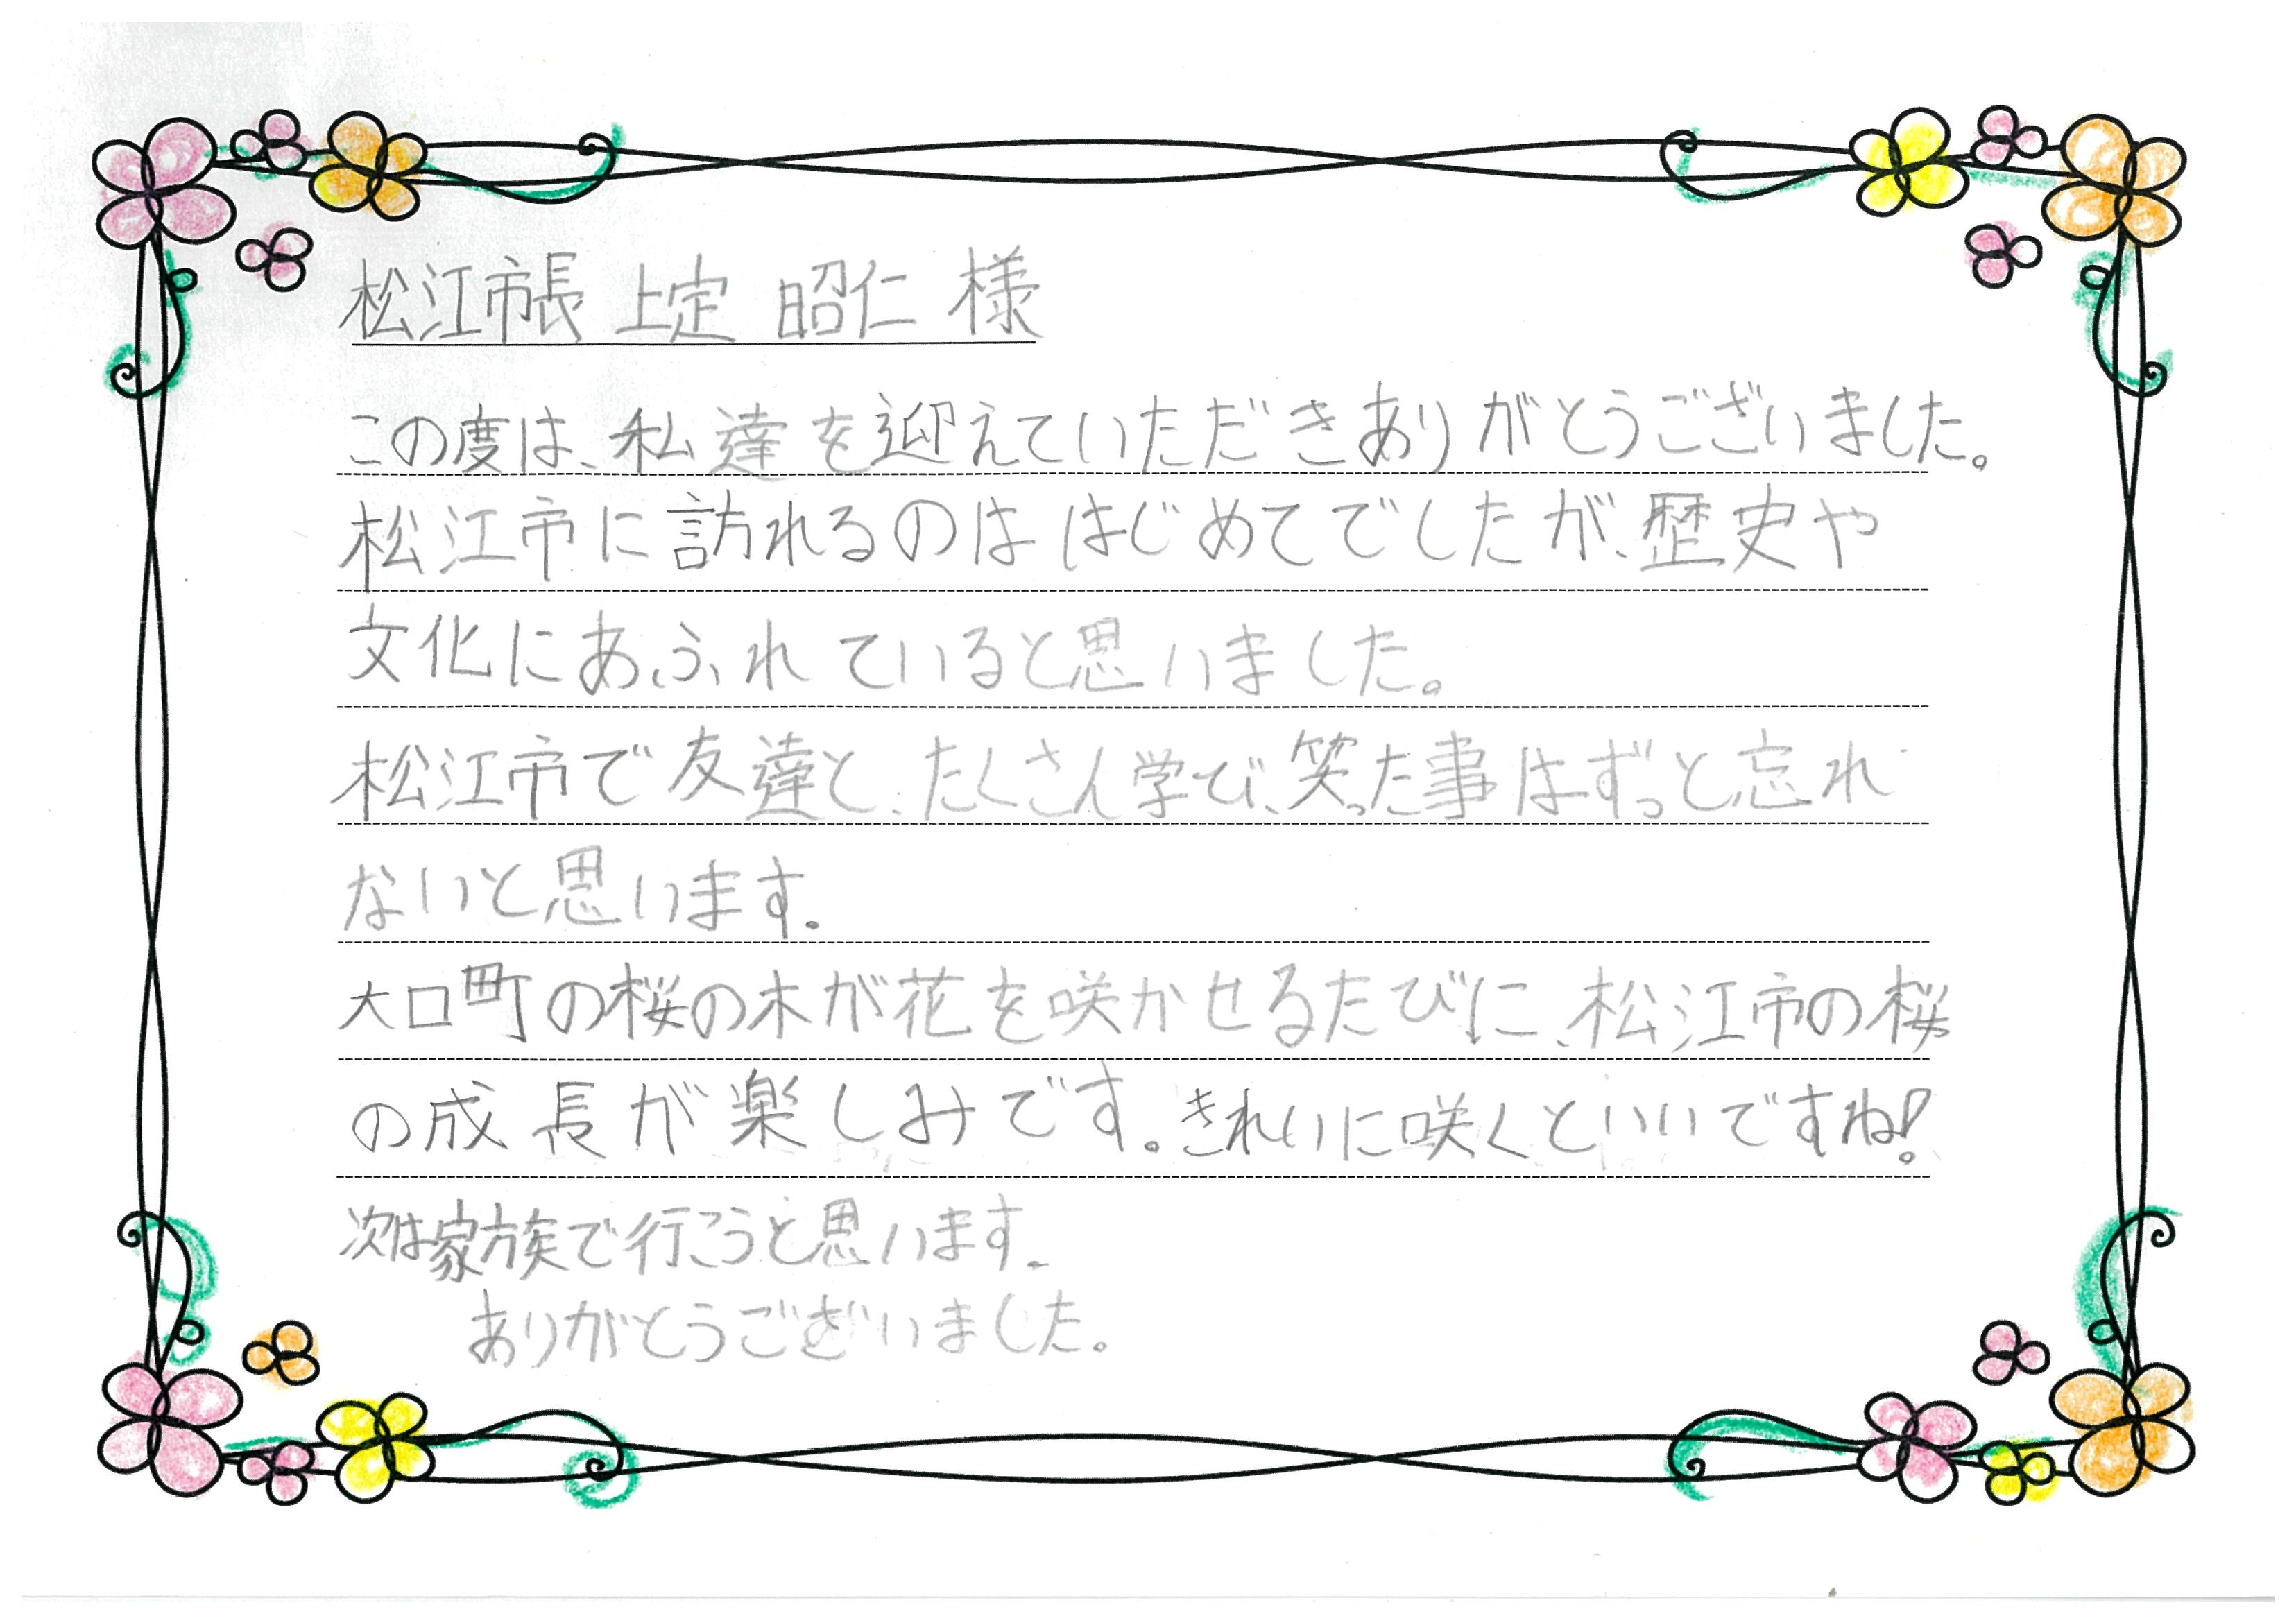 松江市長 上定 昭仁 様
この度は、私達を迎えていただきありがとうございました。
松江市に訪れるのははじめてでしたが、歴史や
文化にあふれていると思いました。
松江市で友達と、たくさん学び、笑った事はずっと忘れ
ないと思います。
大口町の桜の木が花を咲かせるたびに、松江市の桜
の成長が楽しみです。きれいに咲くといいですね!
次は家族で行こうと思います。
ありがとうございました。